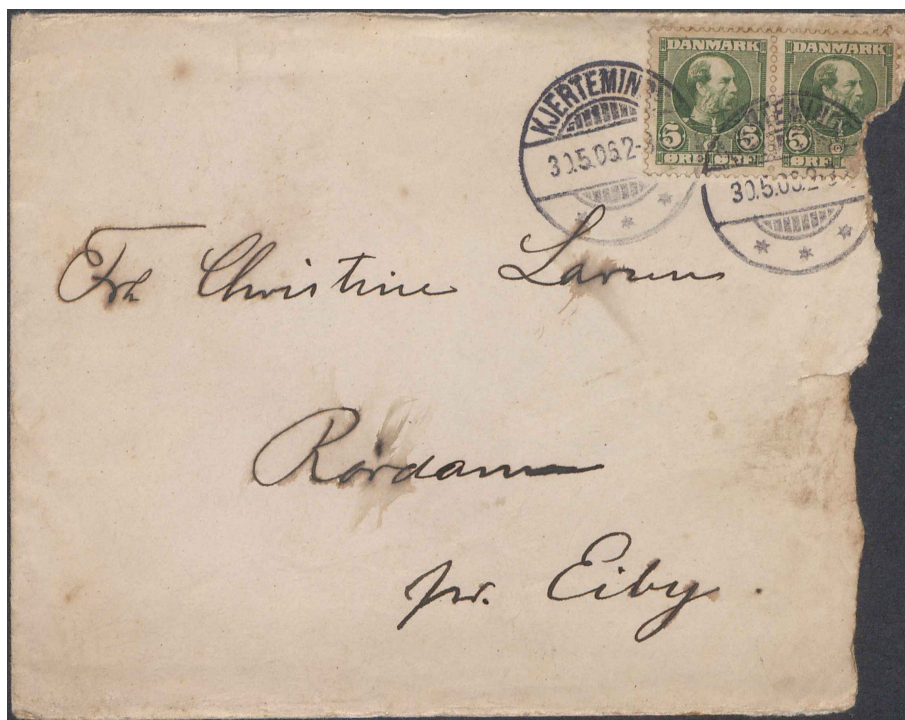 DANMARK DANMARK
5 5 5
ØRE ØRE ØRE
KJERTEMIN
30.5.06.2-
30.5.06.2-3
Frk Christine Larsen
Rørdam
pr. Eiby.